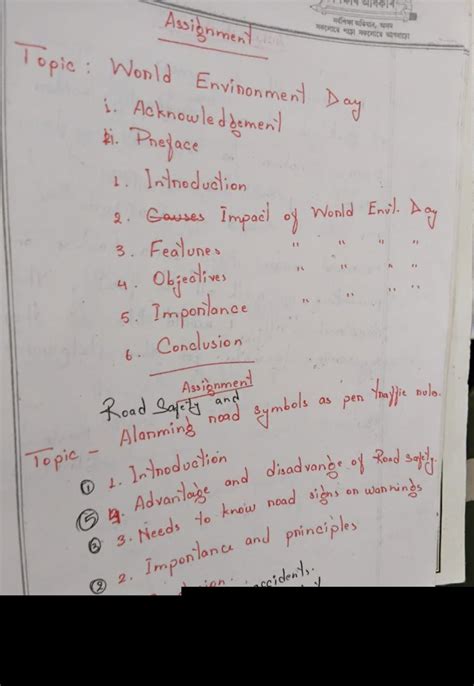 সর্বশিক্ষা অভিযান, অসম
Assignment
Topic : World Environment Day
i. Acknowledgement
ii. Preface
1. Introduction
2. Causes Impact of World Envil. Day
3. Features " " " "
4. Objectives " " " "
5. Importance " " "
6. Conclusion
Assignment
Road Safety and
Topic - Alarming road symbols as per traffic rule.
① 1. Introduction
⑤ 4. Advantage and disadvange of Road safety.
③ 3. Needs to know road signs or warnings
② 2. Importance and principles
accidents.